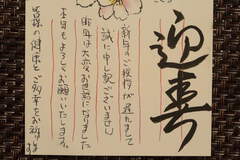 迎春
新年のご挨拶が遅れまして
誠に申し訳ございません
昨年は大変お世話になりました
本年もよろしくお願いいたします。
皆様の健康とご多幸をお祈り